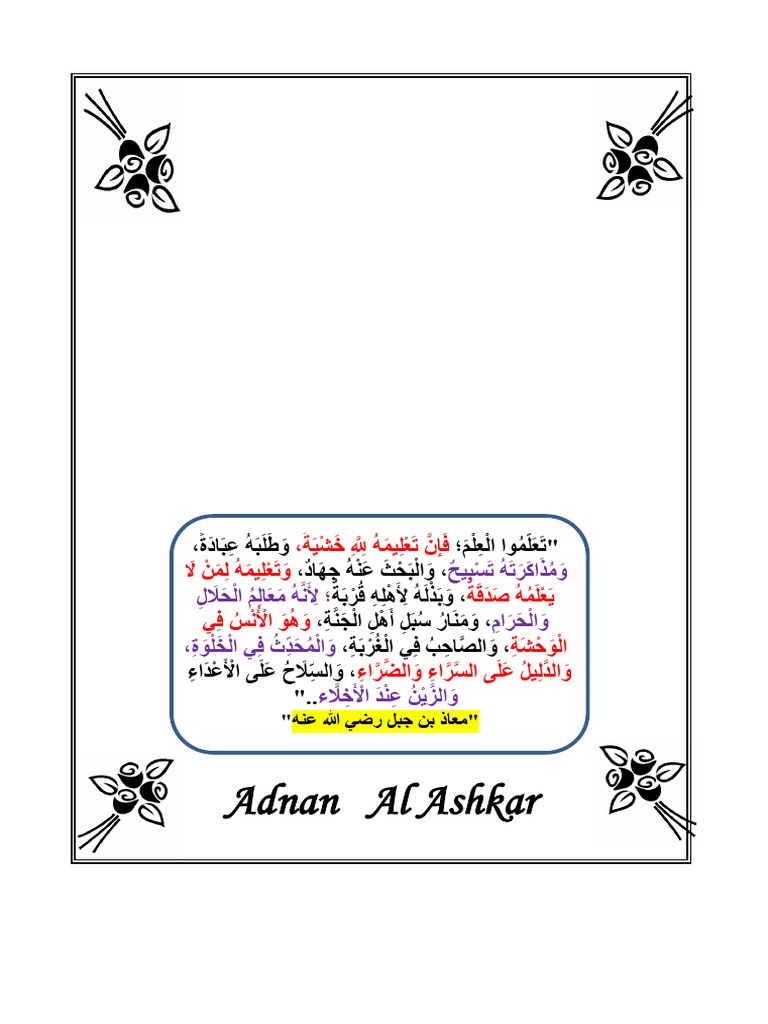 "تَعَلَّمُوا الْعِلْمَ؛ فَإِنَّ تَعْلِيمَهُ لِلَّهِ خَشْيَةٌ، وَطَلَبَهُ عِبَادَةٌ،
وَمُذَاكَرَتَهُ تَسْبِيحٌ، وَالْبَحْثَ عَنْهُ جِهَادٌ، وَتَعْلِيمَهُ لِمَنْ لَا
يَعْلَمُهُ صَدَقَةٌ، وَبَذْلَهُ لِأَهْلِهِ قُرْبَةٌ؛ لِأَنَّهُ مَعَالِمُ الْحَلَالِ
وَالْحَرَامِ، وَمَنَارُ سُبَلِ أَهْلِ الْجَنَّةِ، وَهُوَ الْأُنْسُ فِي
الْوَحْشَةِ، وَالصَّاحِبُ فِي الْغُرْبَةِ، وَالْمُحَدِّثُ فِي الْخَلْوَةِ،
وَالدَّلِيلُ عَلَى السَّرَّاءِ وَالضَّرَّاءِ، وَالسِّلَاحُ عَلَى الْأَعْدَاءِ
وَالزَّيْنُ عِنْدَ الْأَخِلَّاءِ.."
"معاذ بن جبل رضي الله عنه"
Adnan Al Ashkar